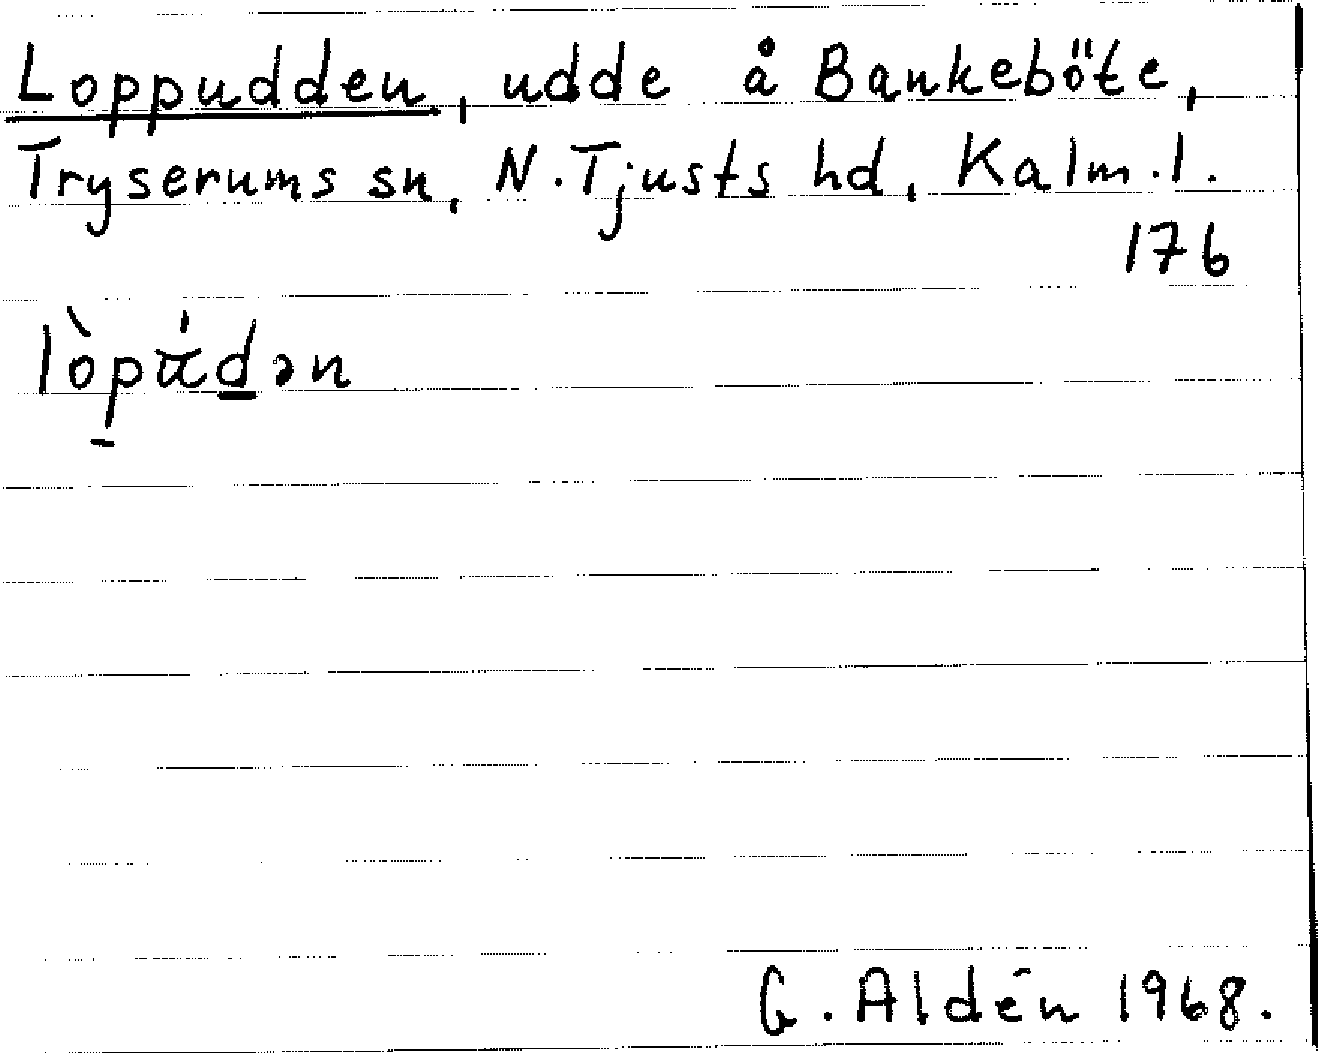 Loppudden, udde å Bankeböte,
Tryserums sn, N. Tjusts hd, Kalm. l.
176
G. Aldén 1968.